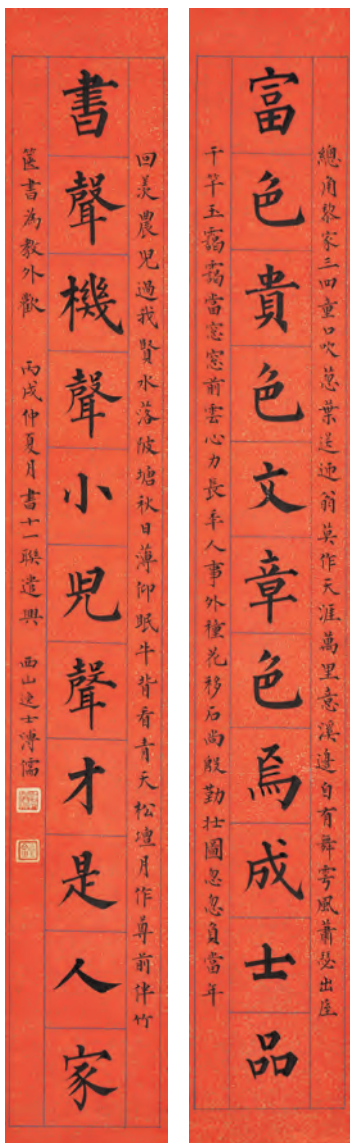 總角黎家三四童口吹蔥葉送迎翁莫作天涯萬里意溪邊自有舞雩風蕭瑟出崖
富色貴色文章色焉成士品
千竿玉靄靄當窗窗前雲心力長年人事外種花移石尚殷勤壯圖忽忽負當年
回羨農兒過我賢水落陂塘秋日薄仰眠牛背看青天松壇月作尊前伴竹
書聲機聲小兒聲才是人家
篋書為教外歡 丙戌仲夏月書十一聯遣興 西山逸士溥儒